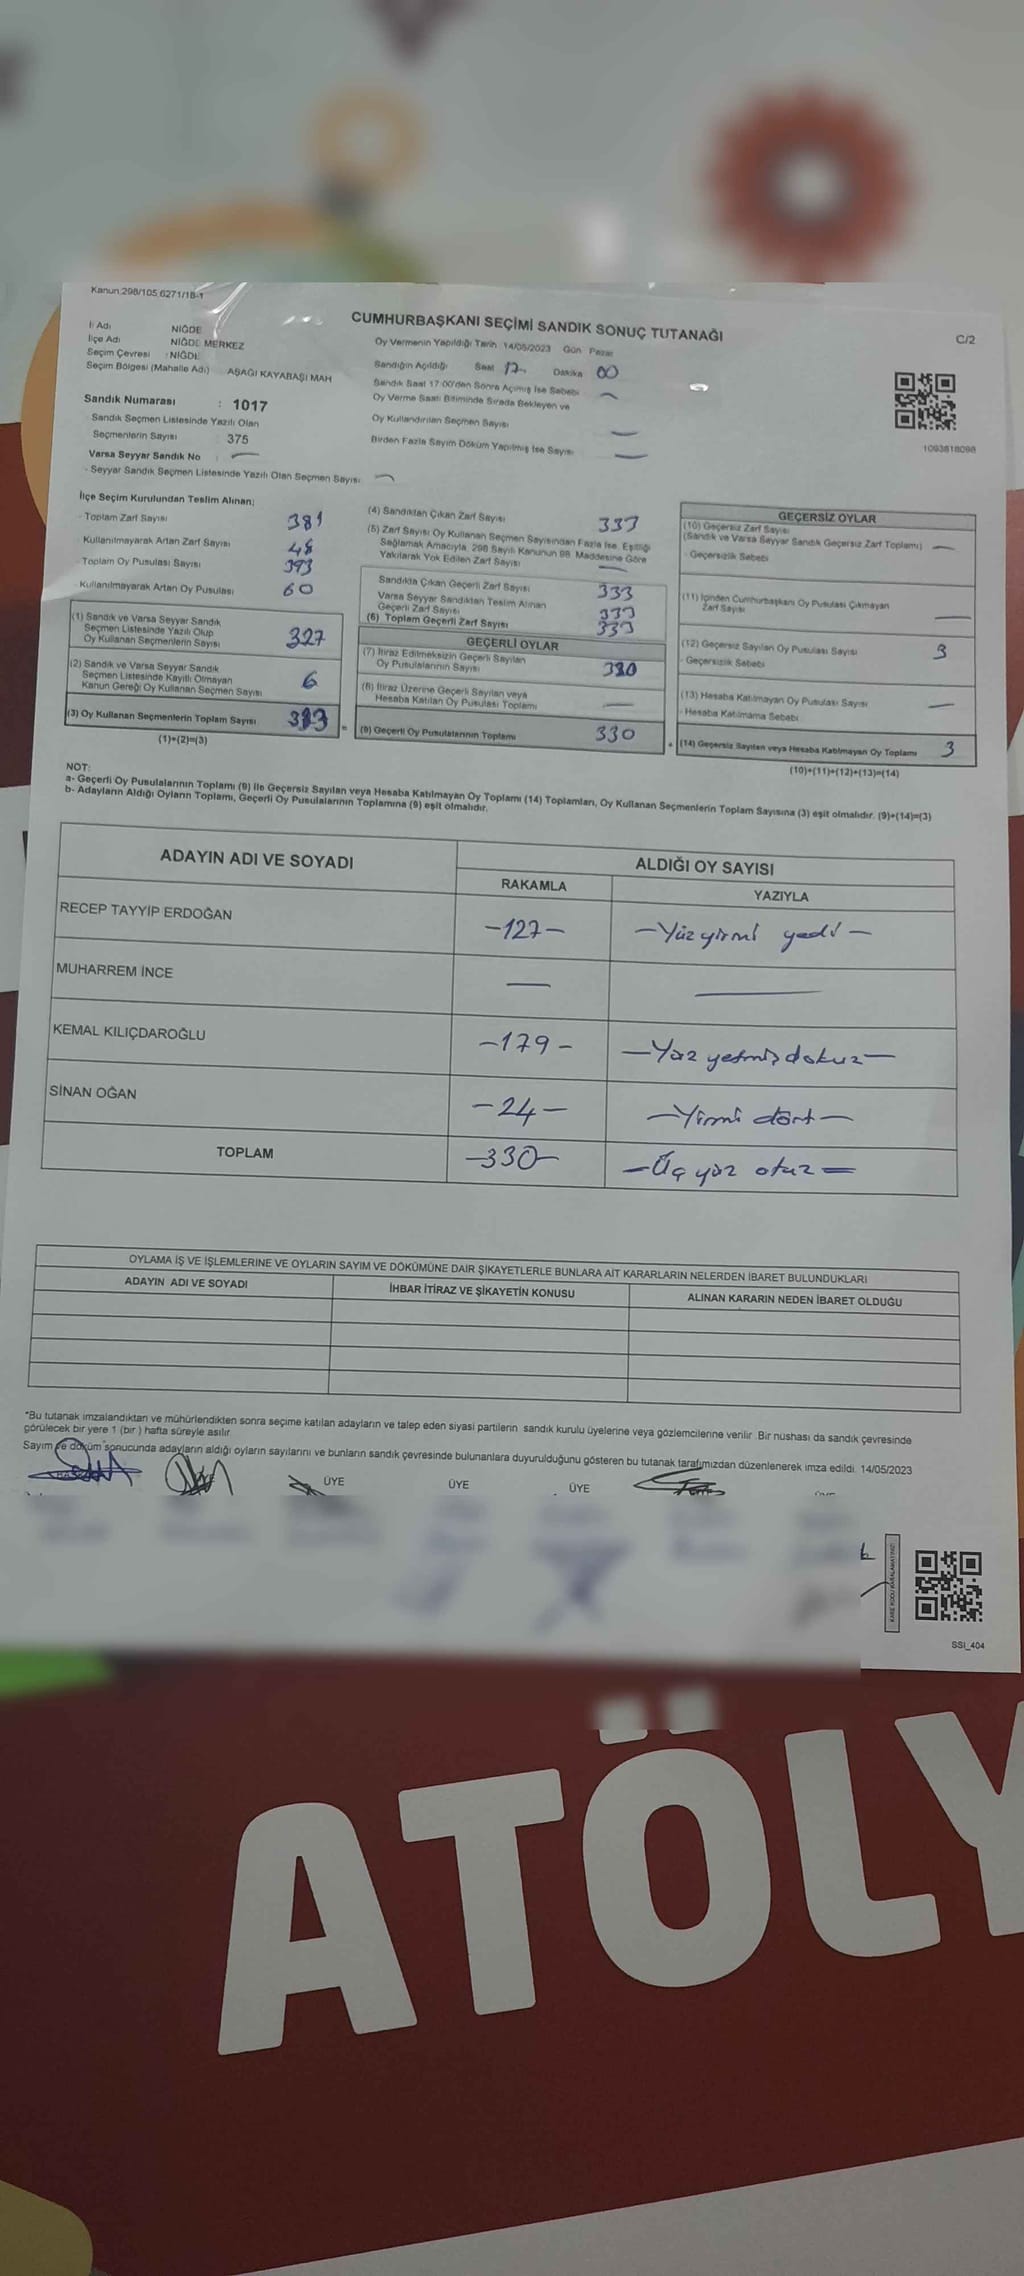 Kanun:298/105,6271/18-1
CUMHURBAŞKANI SEÇİMİ SANDIK SONUÇ TUTANAĞI
C/2
İl Adı NİĞDE
İlçe Adı NİĞDE MERKEZ
Seçim Çevresi : NİĞDE
Seçim Bölgesi (Mahalle Adı) AŞAĞI KAYABAŞI MAH
Sandık Numarası : 1017
Sandık Seçmen Listesinde Yazılı Olan
Seçmenlerin Sayısı : 375
Varsa Seyyar Sandık No : —
- Seyyar Sandık Seçmen Listesinde Yazılı Olan Seçmen Sayısı —
Oy Vermenin Yapıldığı Tarih 14/05/2023 Gün Pazar
Sandığın Açıldığı Saat 17 Dakika 00
Sandık Saat 17:00'den Sonra Açılmış İse Sebebi —
Oy Verme Saati Bitiminde Sırada Bekleyen ve
Oy Kullandırılan Seçmen Sayısı —
Birden Fazla Sayım Döküm Yapılmış İse Sayısı —
1093618098
İlçe Seçim Kurulundan Teslim Alınan;
- Toplam Zarf Sayısı 381
- Kullanılmayarak Artan Zarf Sayısı 48
- Toplam Oy Pusulası Sayısı 393
- Kullanılmayarak Artan Oy Pusulası 60
(1) Sandık ve Varsa Seyyar Sandık
Seçmen Listesinde Yazılı Olup
Oy Kullanan Seçmenlerin Sayısı 327
(2) Sandık ve Varsa Seyyar Sandık
Seçmen Listesinde Kayıtlı Olmayan
Kanun Gereği Oy Kullanan Seçmen Sayısı 6
(3) Oy Kullanan Seçmenlerin Toplam Sayısı 333
(1)+(2)=(3)
(4) Sandıktan Çıkan Zarf Sayısı 333
(5) Zarf Sayısı Oy Kullanan Seçmen Sayısından Fazla İse, Eşitliği
Sağlamak Amacıyla, 298 Sayılı Kanunun 98. Maddesine Göre
Yakılarak Yok Edilen Zarf Sayısı —
Sandıkta Çıkan Geçerli Zarf Sayısı 333
Varsa Seyyar Sandıktan Teslim Alınan
Geçerli Zarf Sayısı 333
(6) Toplam Geçerli Zarf Sayısı 333
GEÇERLİ OYLAR
(7) İtiraz Edilmeksizin Geçerli Sayılan
Oy Pusulalarının Sayısı 330
(8) İtiraz Üzerine Geçerli Sayılan veya
Hesaba Katılan Oy Pusulası Toplamı —
(9) Geçerli Oy Pusulalarının Toplamı 330
GEÇERSİZ OYLAR
(10) Geçersiz Zarf Sayısı
(Sandık ve Varsa Seyyar Sandık Geçersiz Zarf Toplamı) —
- Geçersizlik Sebebi
(11) İçinden Cumhurbaşkanı Oy Pusulası Çıkmayan
Zarf Sayısı —
(12) Geçersiz Sayılan Oy Pusulası Sayısı 3
- Geçersizlik Sebebi
(13) Hesaba Katılmayan Oy Pusulası Sayısı —
- Hesaba Katılmama Sebebi
(14) Geçersiz Sayılan veya Hesaba Katılmayan Oy Toplamı 3
(10)+(11)+(12)+(13)=(14)
NOT:
a- Geçerli Oy Pusulalarının Toplamı (9) ile Geçersiz Sayılan veya Hesaba Katılmayan Oy Toplamı (14) Toplamları, Oy Kullanan Seçmenlerin Toplam Sayısına (3) eşit olmalıdır. (9)+(14)=(3)
b- Adayların Aldığı Oyların Toplamı, Geçerli Oy Pusulalarının Toplamına (9) eşit olmalıdır.
ADAYIN ADI VE SOYADI ALDIĞI OY SAYISI
RAKAMLA YAZIYLA
RECEP TAYYİP ERDOĞAN -127- -Yüz yirmi yedi-
MUHARREM İNCE — —
KEMAL KILIÇDAROĞLU -179- -Yüz yetmiş dokuz-
SİNAN OĞAN -24- -Yirmi dört-
TOPLAM -330- -Üç yüz otuz-
OYLAMA İŞ VE İŞLEMLERİNE VE OYLARIN SAYIM VE DÖKÜMÜNE DAİR ŞİKAYETLERLE BUNLARA AİT KARARLARIN NELERDEN İBARET BULUNDUKLARI
ADAYIN ADI VE SOYADI İHBAR İTİRAZ VE ŞİKAYETİN KONUSU ALINAN KARARIN NEDEN İBARET OLDUĞU
*Bu tutanak imzalandıktan ve mühürlendikten sonra seçime katılan adayların ve talep eden siyasi partilerin sandık kurulu üyelerine veya gözlemcilerine verilir. Bir nüshası da sandık çevresinde
görülecek bir yere 1 (bir) hafta süreyle asılır.
Sayım ve döküm sonucunda adayların aldığı oyların sayılarını ve bunların sandık çevresinde bulunanlara duyurulduğunu gösteren bu tutanak tarafımızdan düzenlenerek imza edildi. 14/05/2023
ÜYE ÜYE ÜYE
SSI_404
ATÖLY